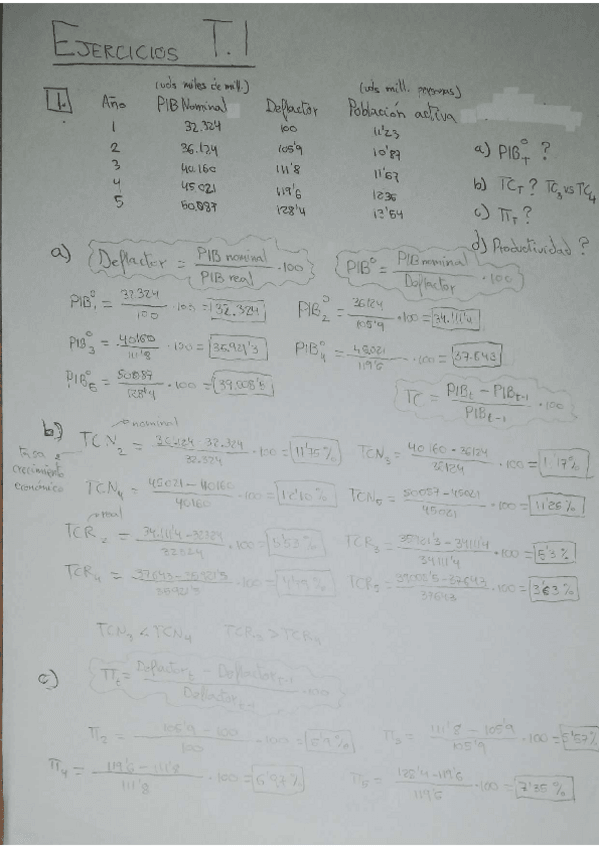 EJERCICIOS T.1
(uds miles de mill.) (uds mill. personas)
1. Año PIB Nominal Deflactor Población activa
1 32.324 100 11'23
2 36.124 105'9 10'87 a) PIB°T ?
3 40.160 111'8 11'67
4 45021 119'6 1236 b) TCT? TC3 vs TC4
5 50.087 128'4 13'64 c) πT ?
d) Productividad ?
a) Deflactor = PIB nominal / PIB real · 100 PIB° = PIB nominal / Deflactor · 100
PIB°1 = 32.324 / 100 · 100 = 32.324 PIB°2 = 36124 / 105'9 · 100 = 34.111'4
PIB°3 = 40160 / 111'8 · 100 = 35921'3 PIB°4 = 45021 / 119'6 · 100 = 37.643
PIB°5 = 50087 / 128'4 · 100 = 39.008'5
TC = PIBt - PIBt-1 / PIBt-1 · 100
b) nominal
TCN2 = 36.124 - 32.324 / 32.324 · 100 = 11'75% TCN3 = 40160 - 36124 / 36124 · 100 = 11'17%
Tasa
crecimiento
económico
TCN4 = 45021 - 40160 / 40160 · 100 = 12'10% TCN5 = 50087 - 45021 / 45021 · 100 = 11'25%
real
TCR2 = 34.111'4 - 32324 / 32324 · 100 = 5'53% TCR3 = 35921'3 - 34111'4 / 34111'4 · 100 = 5'3%
TCR4 = 37643 - 35921'3 / 35921'3 · 100 = 4'79% TCR5 = 39008'5 - 37643 / 37643 · 100 = 3'63%
TCN3 < TCN4 TCR3 > TCR4
c) πt = Deflactort - Deflactort-1 / Deflactort-1 · 100
π2 = 105'9 - 100 / 100 · 100 = 5'9% π3 = 111'8 - 105'9 / 105'9 · 100 = 5'57%
π4 = 119'6 - 111'8 / 111'8 · 100 = 6'97% π5 = 128'4 - 119'6 / 119'6 · 100 = 7'35%